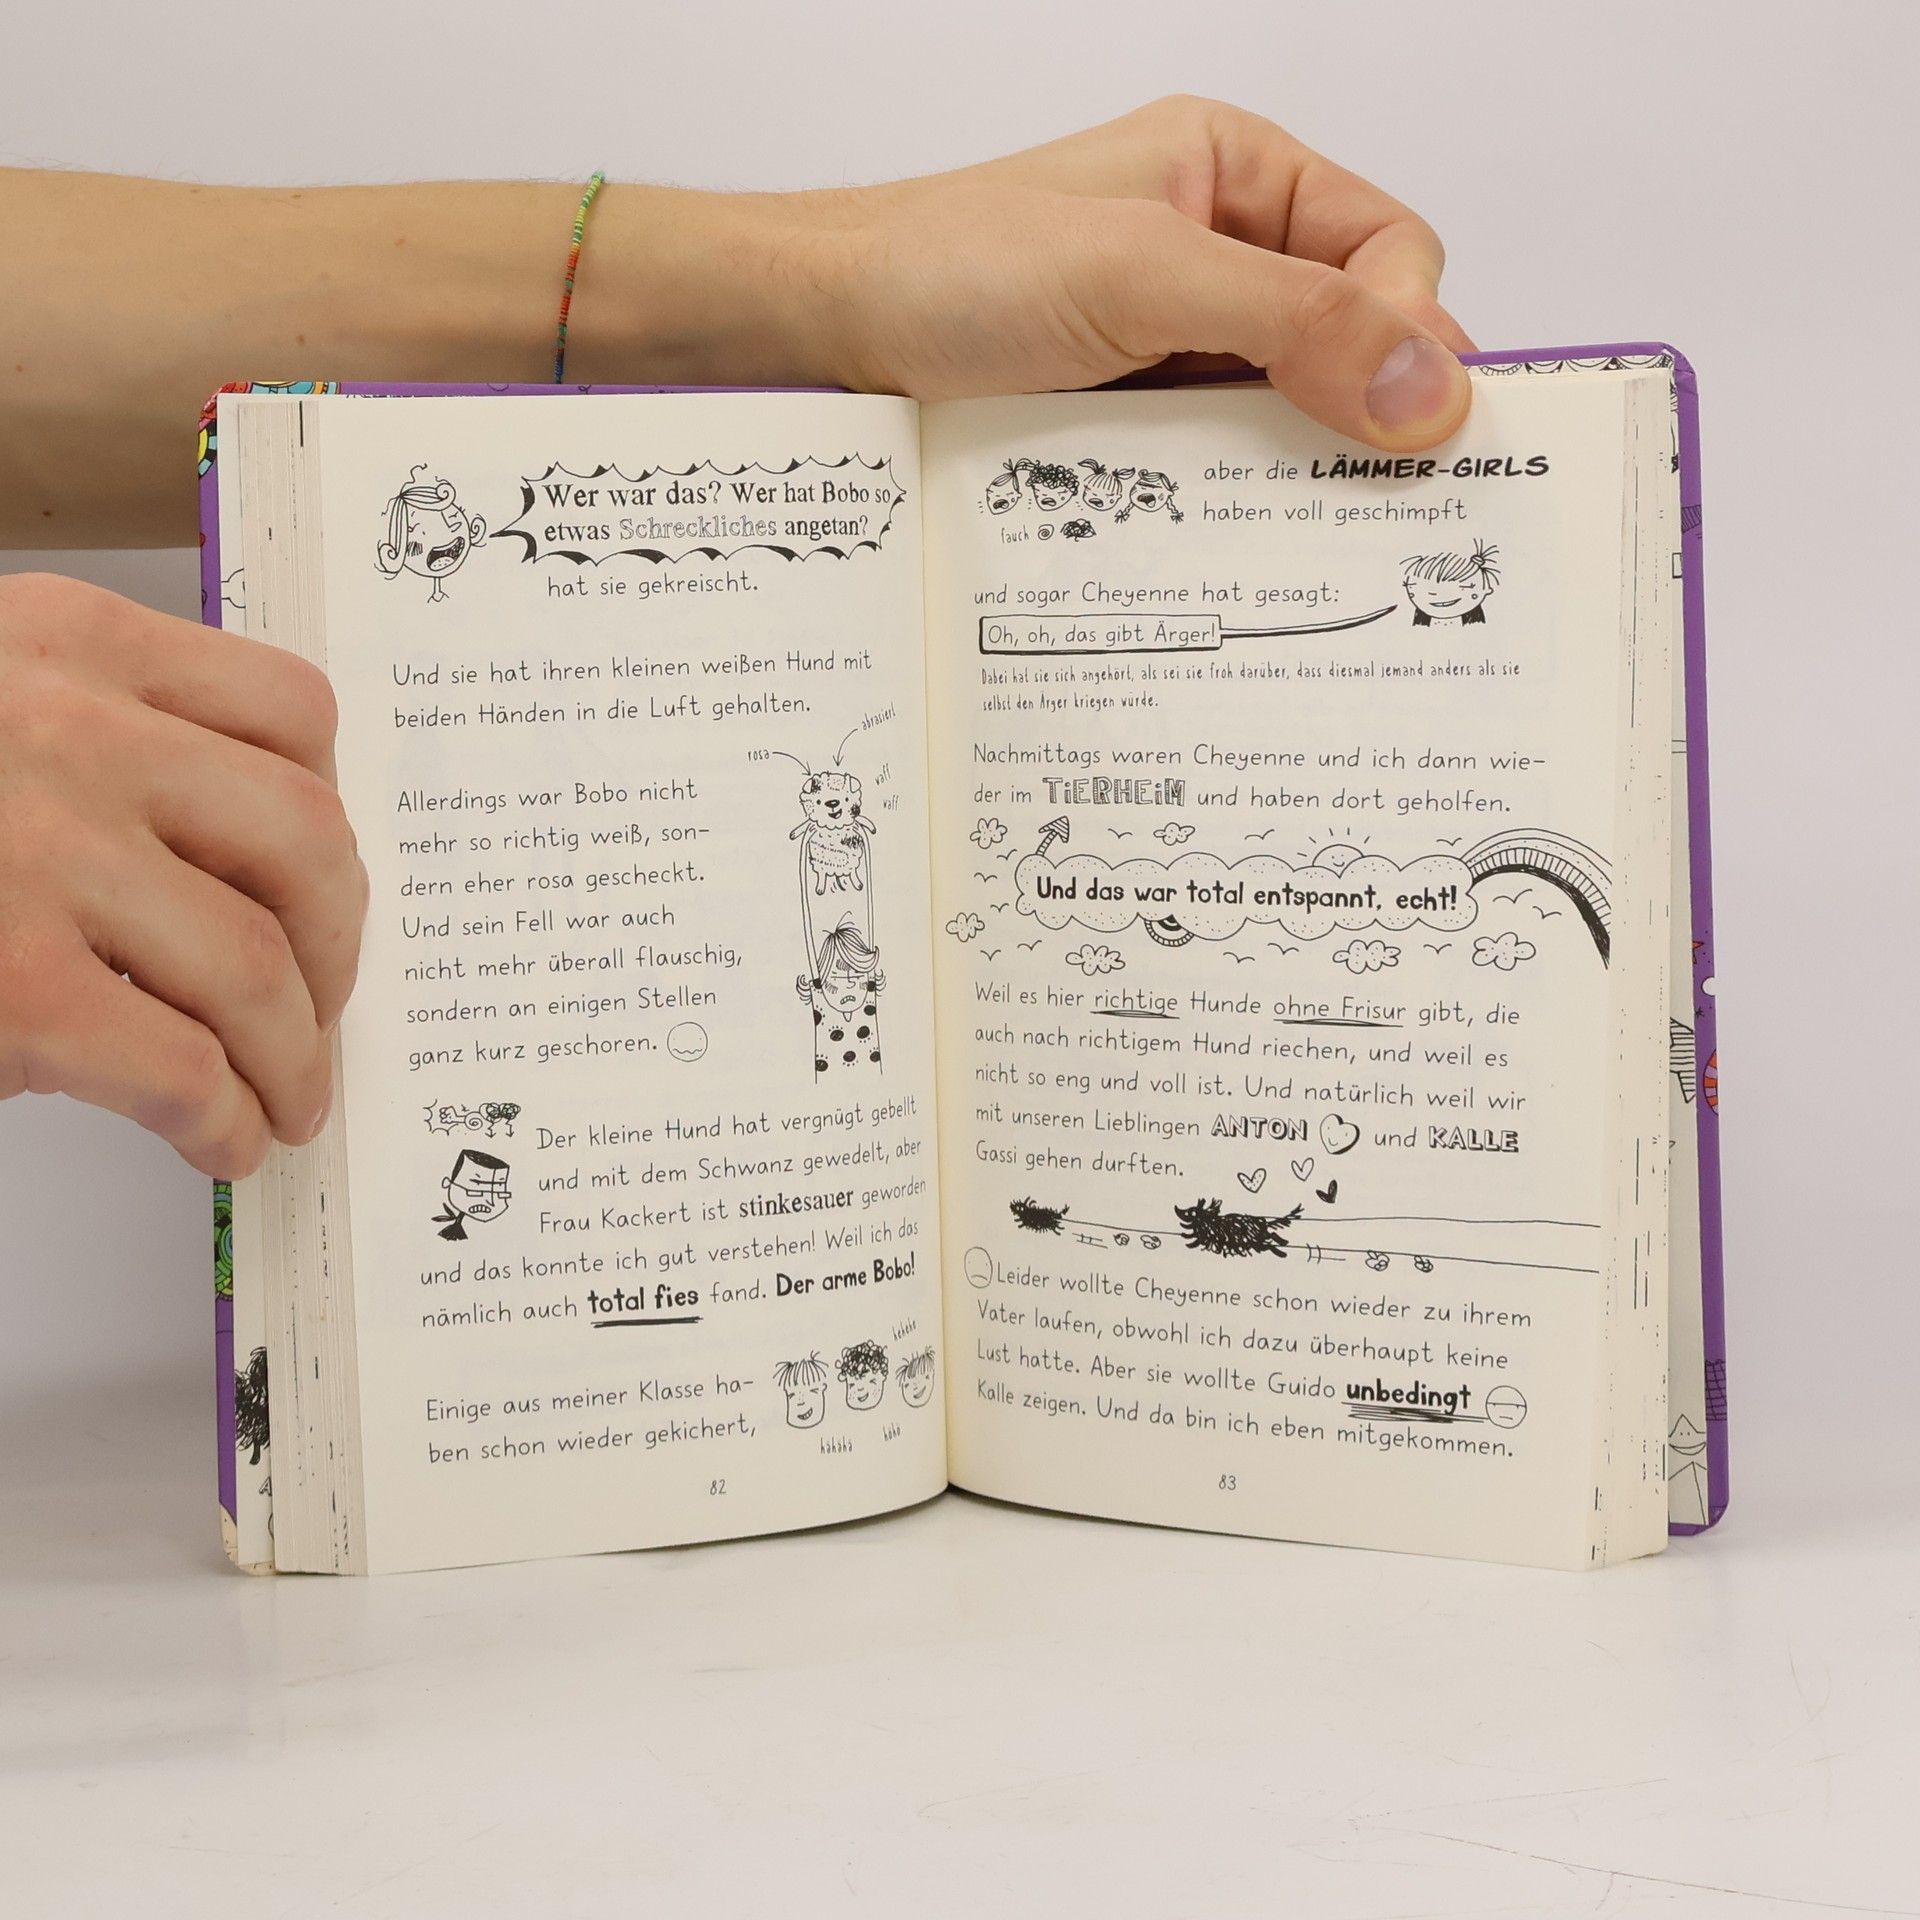 Wer war das? Wer hat Bobo so
etwas Schreckliches angetan?
hat sie gekreischt.
Und sie hat ihren kleinen weißen Hund mit
beiden Händen in die Luft gehalten.
rosa
abrasiert
waff
waff
Allerdings war Bobo nicht
mehr so richtig weiß, son-
dern eher rosa gescheckt.
Und sein Fell war auch
nicht mehr überall flauschig,
sondern an einigen Stellen
ganz kurz geschoren.
Der kleine Hund hat vergnügt gebellt
und mit dem Schwanz gewedelt, aber
Frau Kackert ist stinkesauer geworden
und das konnte ich gut verstehen! Weil ich das
nämlich auch total fies fand. Der arme Bobo!
Einige aus meiner Klasse ha-
ben schon wieder gekichert,
hehehe
hähähä
höhö
82
aber die LÄMMER-GIRLS
haben voll geschimpft
fauch
und sogar Cheyenne hat gesagt:
Oh, oh, das gibt Ärger!
Dabei hat sie sich angehört, als sei sie froh darüber, dass diesmal jemand anders als sie
selbst den Ärger kriegen würde.
Nachmittags waren Cheyenne und ich dann wie-
der im TiERHEiM und haben dort geholfen.
Und das war total entspannt, echt!
Weil es hier richtige Hunde ohne Frisur gibt, die
auch nach richtigem Hund riechen, und weil es
nicht so eng und voll ist. Und natürlich weil wir
mit unseren Lieblingen ANTON und KALLE
Gassi gehen durften.
Leider wollte Cheyenne schon wieder zu ihrem
Vater laufen, obwohl ich dazu überhaupt keine
Lust hatte. Aber sie wollte Guido unbedingt
Kalle zeigen. Und da bin ich eben mitgekommen.
83